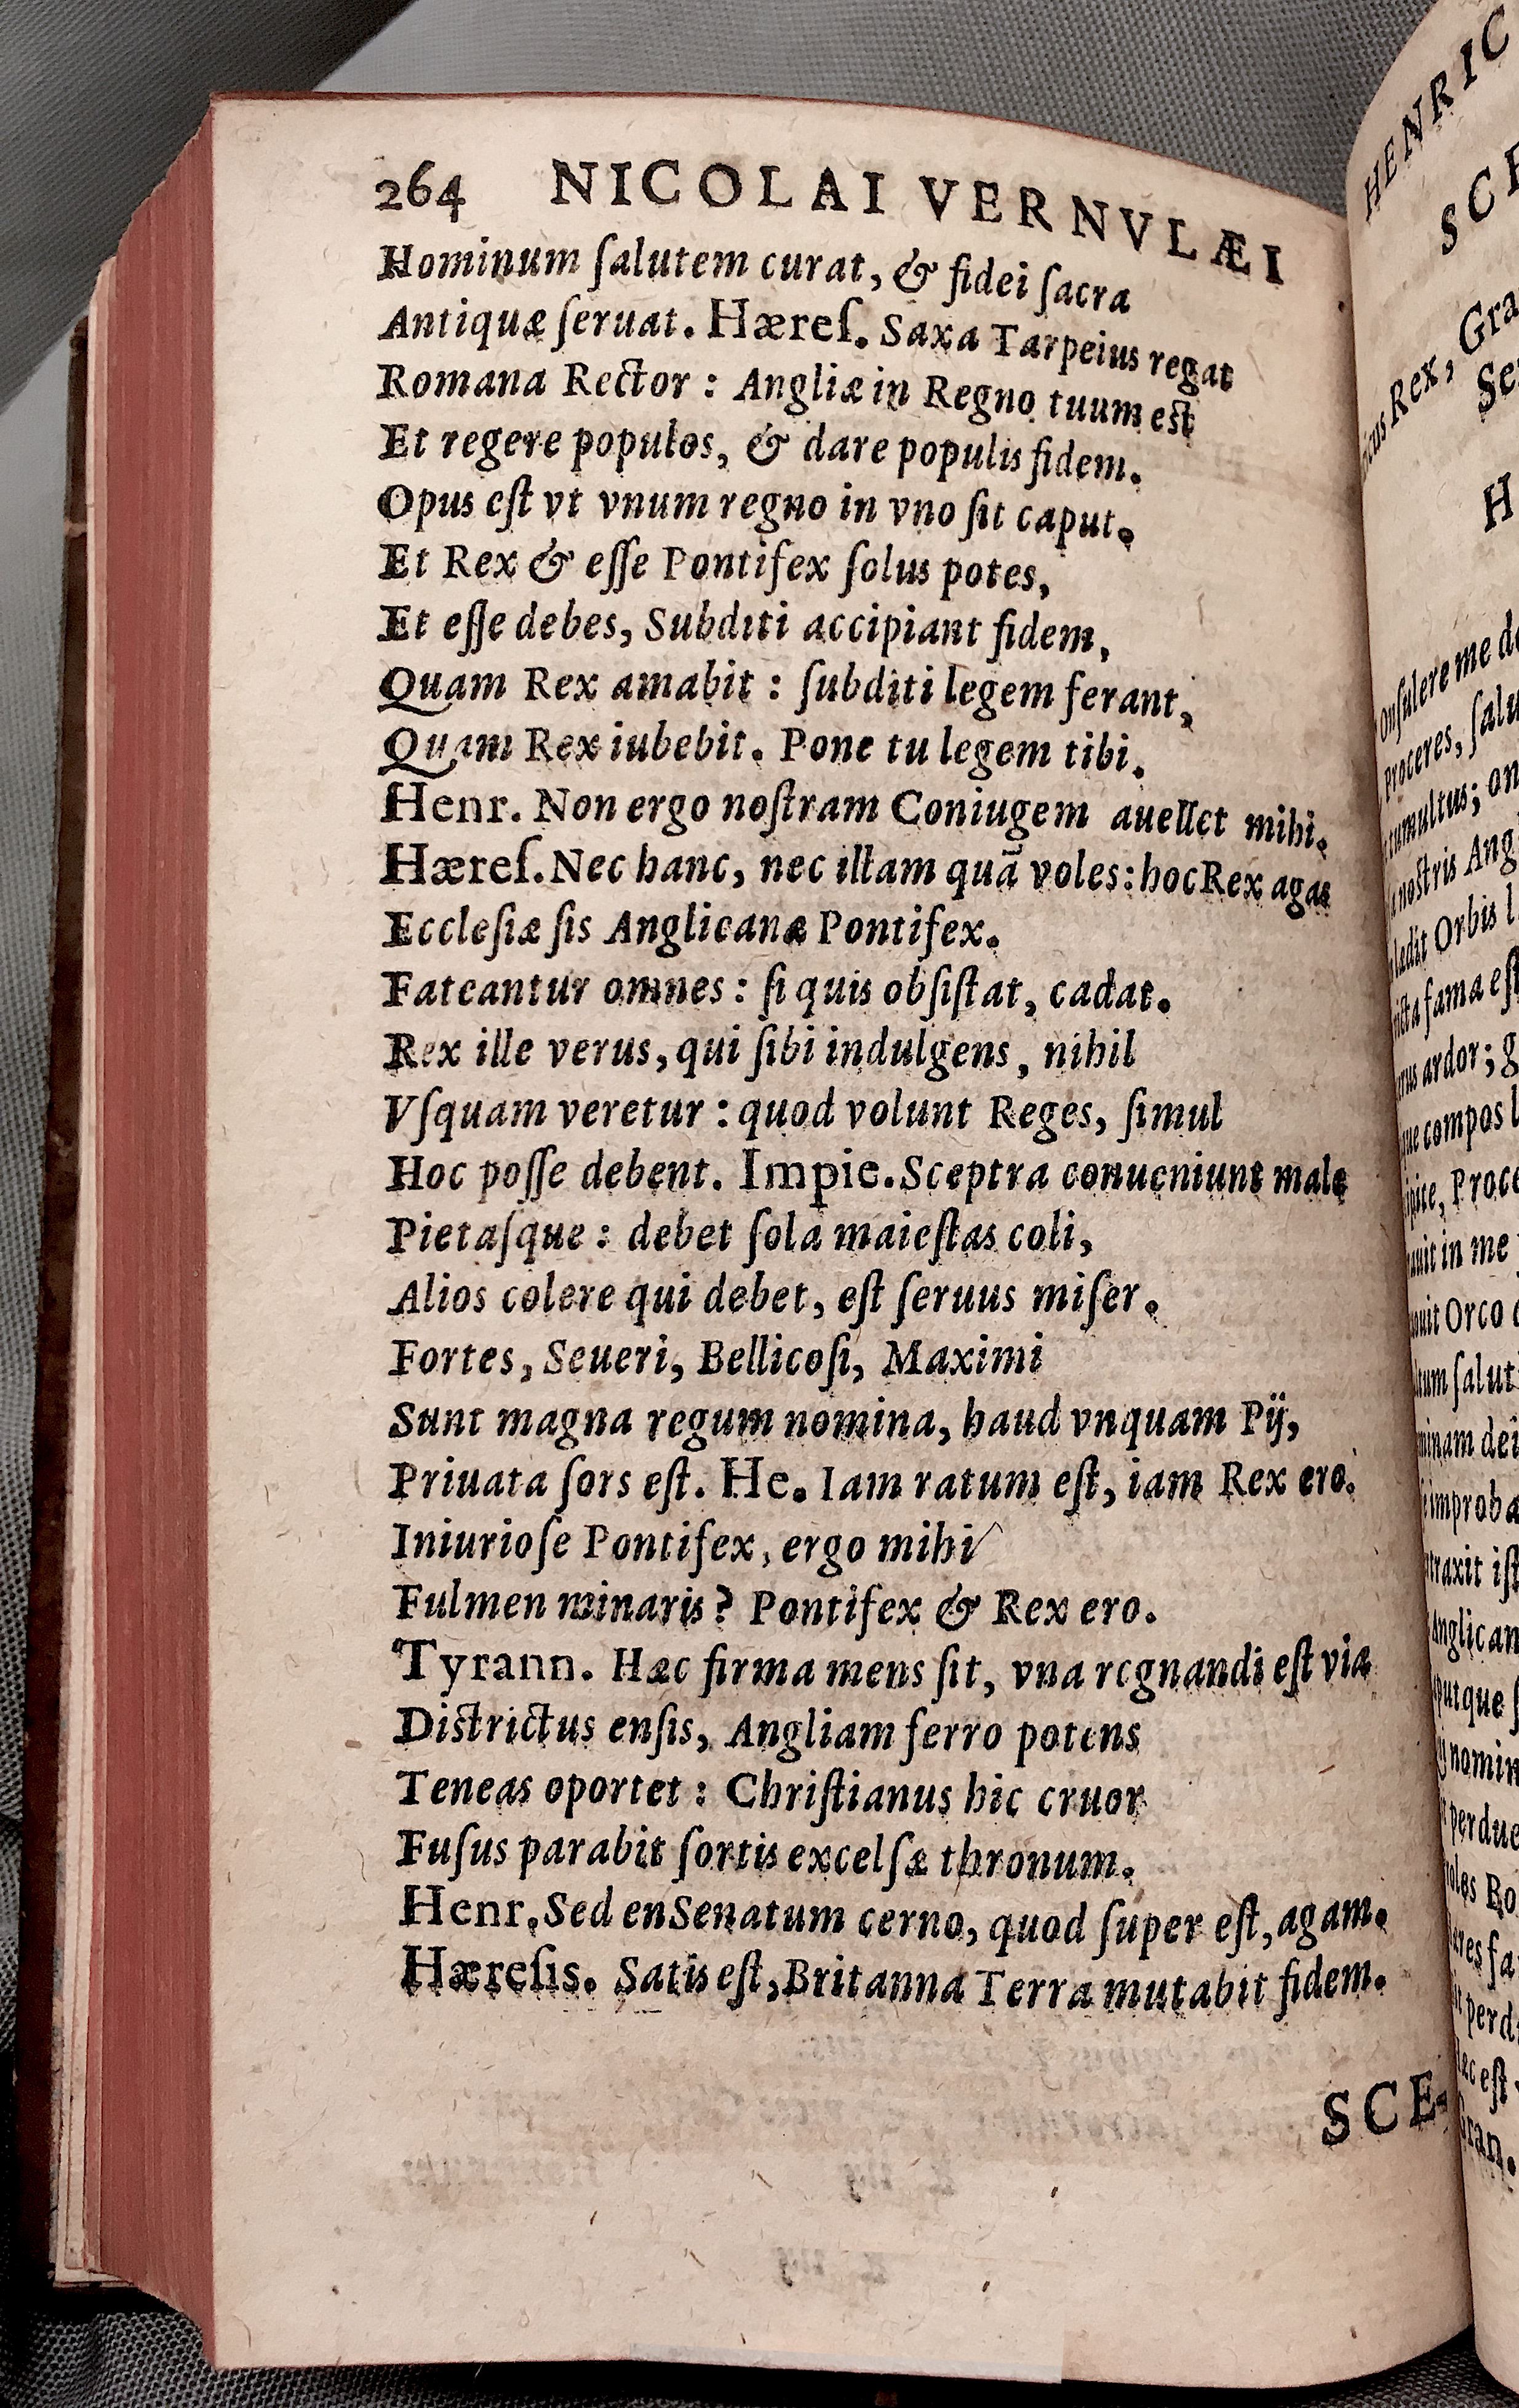 264 NICOLAI VERNVLÆI
Hominum ſalutem curat, & fidei ſacra
Antiquæ ſeruat. Hæreſ. Saxa Tarpeius regat
Romana Rector : Angliæ in Regno tuum est
Et regere populos, & dare populis fidem.
Opus eſt vt vnum regno in vno ſit caput.
Et Rex & eſſe Pontifex ſolus potes,
Et eſſe debes, Subditi accipiant fidem,
Quam Rex amabit : ſubditi legem ferant,
Quam Rex iubebit. Pone tu legem tibi.
Henr. Non ergo noſtram Coniugem auellet mihi.
Hæreſ. Nec hanc, nec illam quã voles: hoc Rex agas
Eccleſiæ ſis Anglicanæ Pontifex.
Fateantur omnes : ſi quis obſiſtat, cadat.
Rex ille verus, qui ſibi indulgens, nihil
Vſquam veretur : quod volunt Reges, ſimul
Hoc poſſe debent. Impie. Sceptra conueniunt male
Pietaſque : debet ſola maieſtas coli,
Alios colere qui debet, eſt ſeruus miſer.
Fortes, Seueri, Bellicoſi, Maximi
Sunt magna regum nomina, haud vnquam Pij,
Priuata ſors eſt. He. Iam ratum eſt, iam Rex ero.
Iniurioſe Pontifex, ergo mihi
Fulmen minaris? Pontifex & Rex ero.
Tyrann. Hæc firma mens ſit, vna regnandi eſt via
Districtus enſis, Angliam ferro potens
Teneas oportet : Chriſtianus hic cruor
Fuſus parabit ſortis excelſæ thronum.
Henr. Sed en Senatum cerno, quod ſuper eſt, agam.
Hæreſis. Satis eſt, Britanna Terra mutabit fidem.
SCE-
HENRIC
Rex, Gra
H
onſulere me
proceres, ſalu
tumultus; on
nostris Ang
Orbis
fama eſt
ardor; g
compos
Proce
in me
Orco
ſalut
improba
traxit
Anglican
perdue
eſt
Gran.